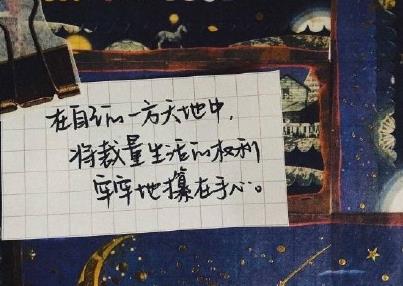 在自己的一方天地中，
将裁量生活的权利
牢牢地攥在手心。